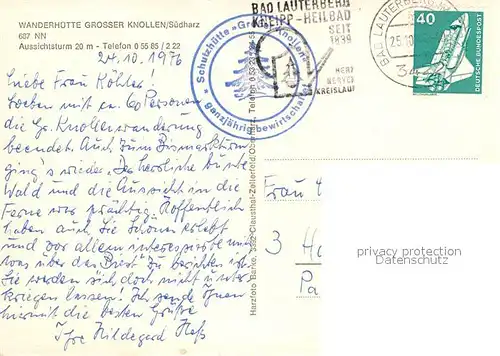 WANDERHÜTTE GROSSER KNOLLEN/Südharz
687 NN
Aussichtsturm 20 m - Telefon 0 55 85 / 2 22
24.10.1976
Liebe Frau Köhler!
Soeben mit ca. 60 Personen
die Gr. Knollenwanderung
beendet. Auch zum Bismarckturm
ging's wieder. Der herrliche bunte
Wald und die Aussicht in die
Ferne war prächtig. Hoffentlich
haben auch Sie Schönes erlebt
und vor allem
was über das Biest zu berichten ist.
Sie werden sich doch nicht unter-
kriegen lassen! Ich sende Ihnen
hiermit die besten Grüße
Ihre Hildegard Heß
Schutzhütte "Großer Knollen"
ganzjährig bewirtschaftet
Harzfoto Barke, 3392 Clausthal-Zellerfeld/Oberharz, Telefon
BAD LAUTERBERG
KNEIPP-HEILBAD
SEIT
1839
HERZ
NERVEN
KREISLAUF
BAD LAUTERBERG
25.10.
40
DEUTSCHE BUNDESPOST
Frau
3
privacy protection
Datenschutz